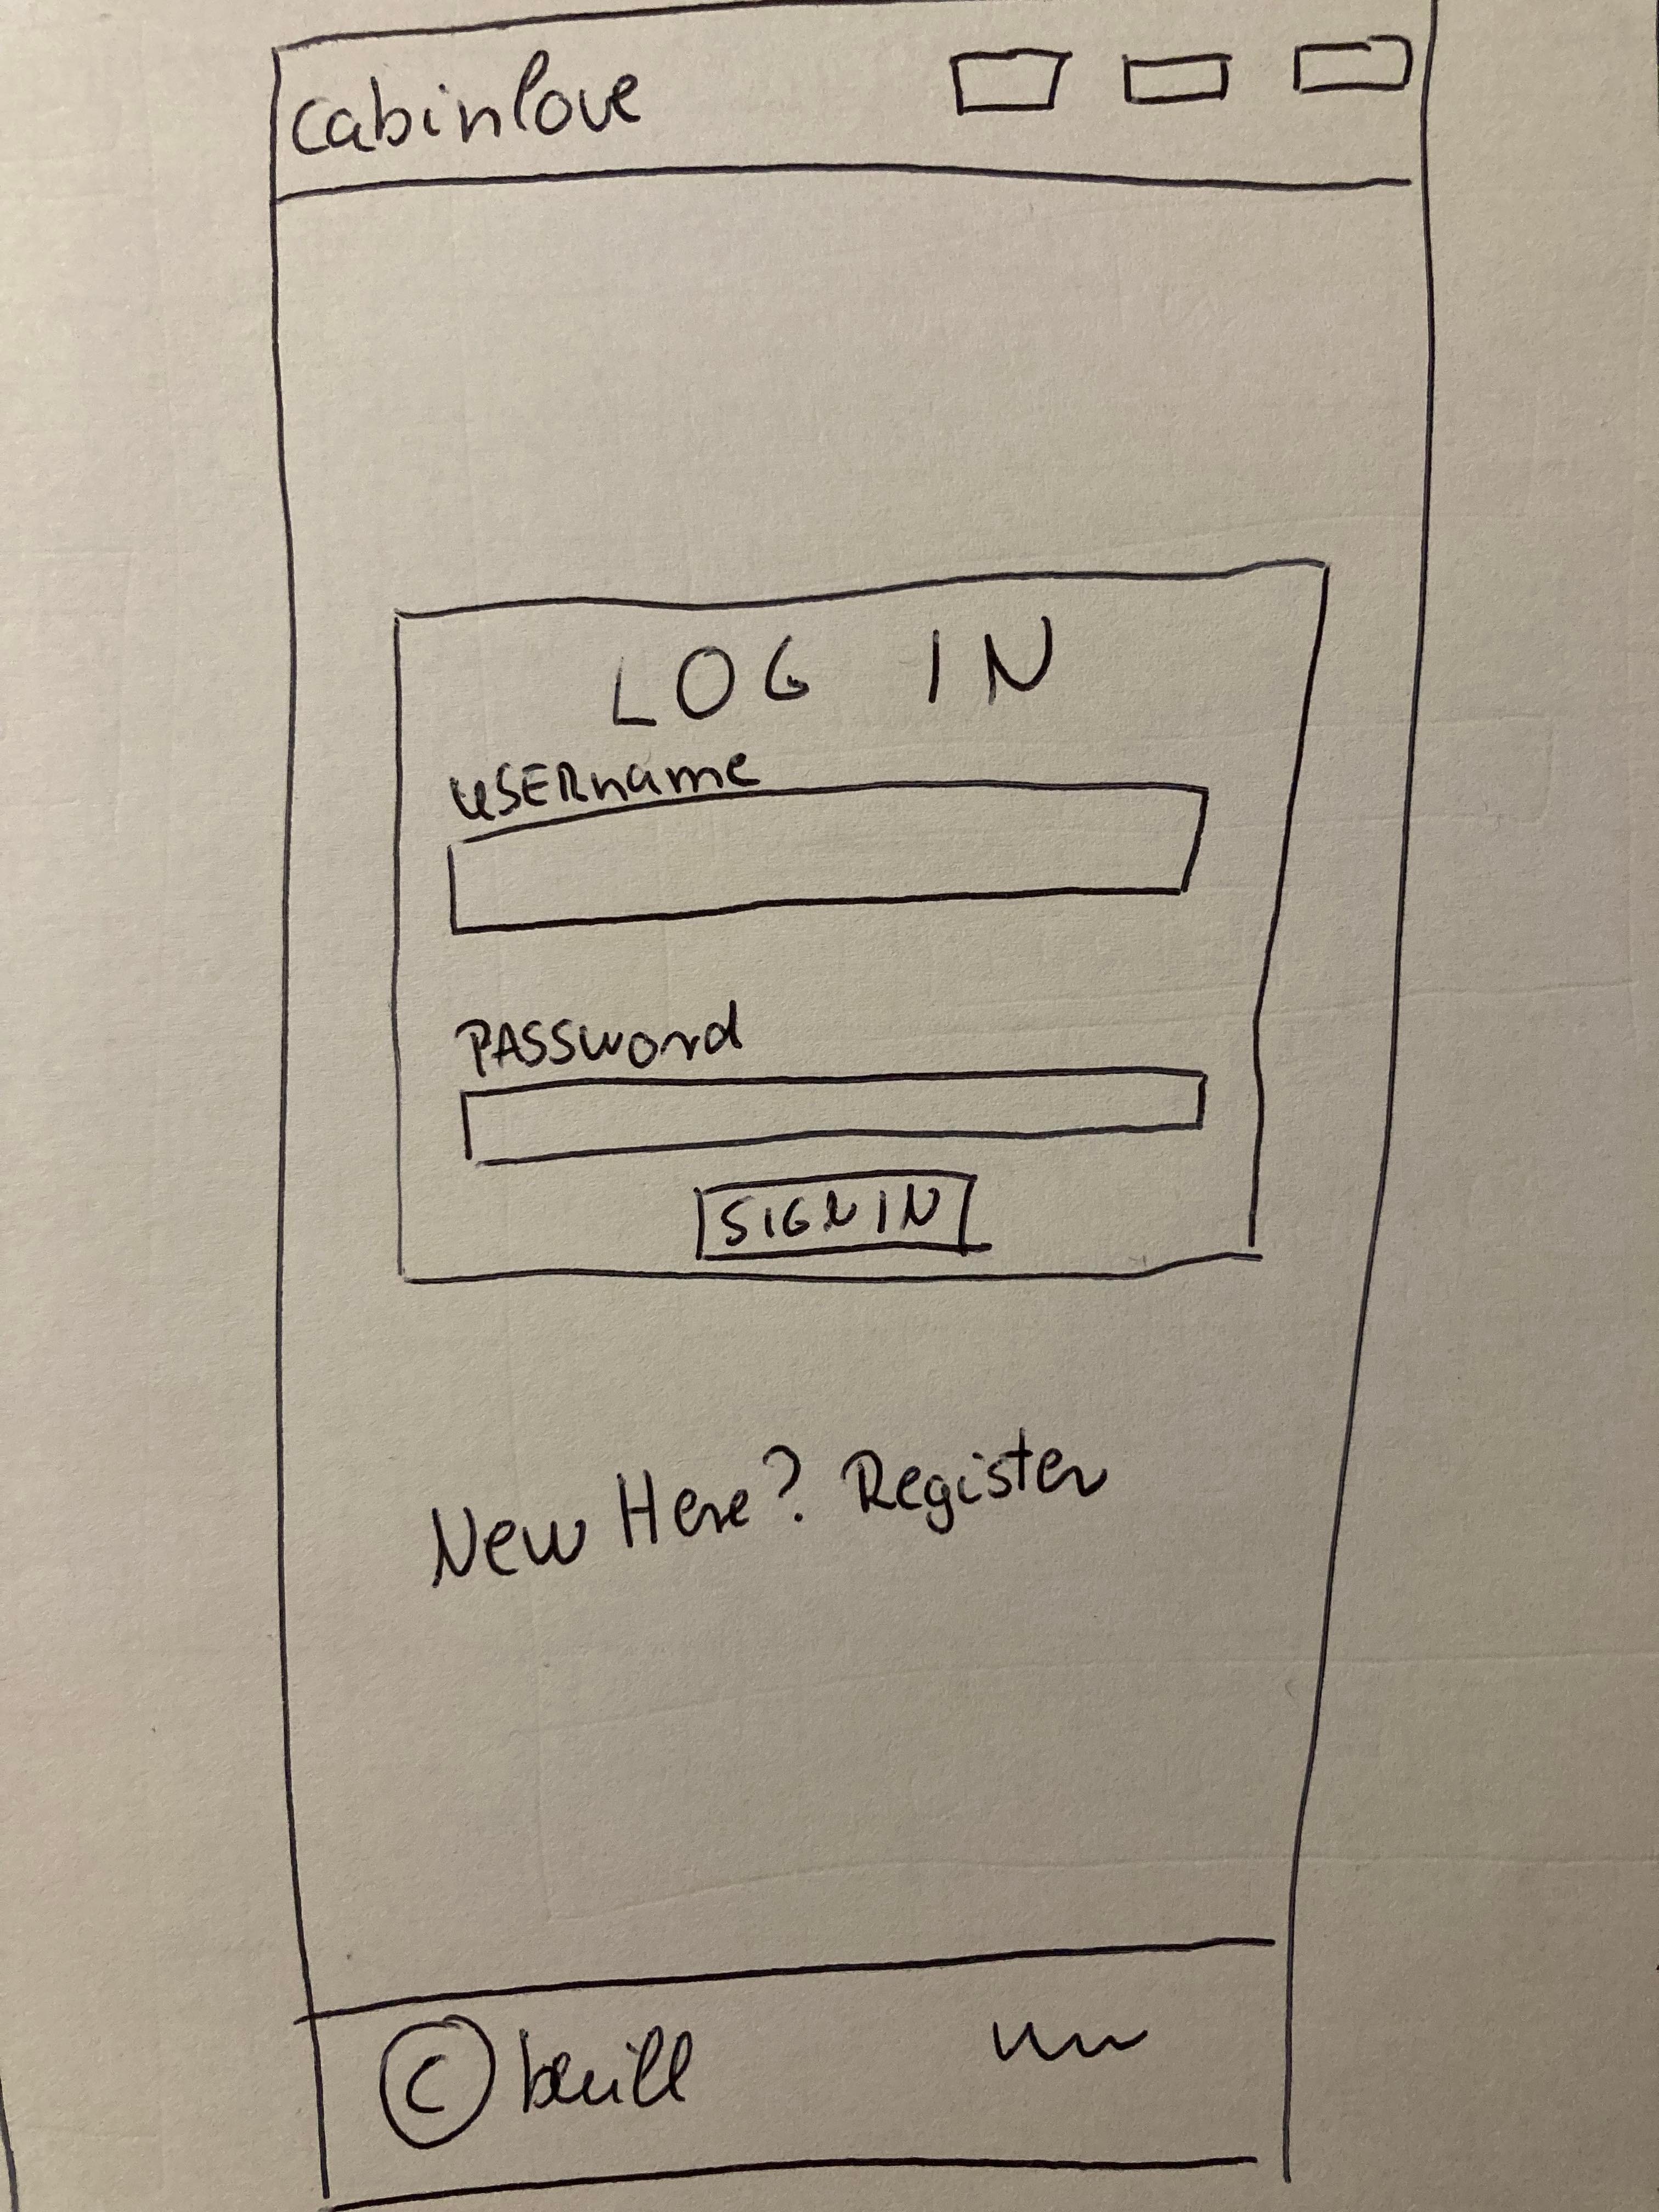 cabinlove
LOG IN
USERname
PASSword
SIGN IN
New Here? Register
©